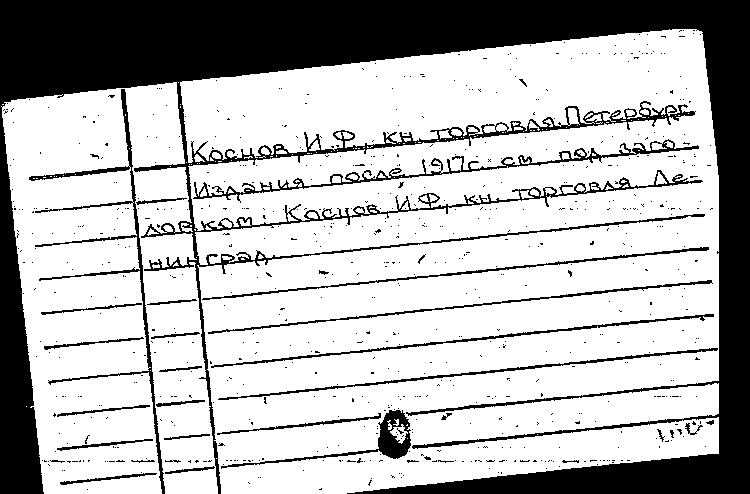 Косцов, И.Ф., кн. торговля. Петербург
Издания после 1917г. см. под заго-
ловком: Косцов, И.Ф., кн. торговля. Ле-
нинград.